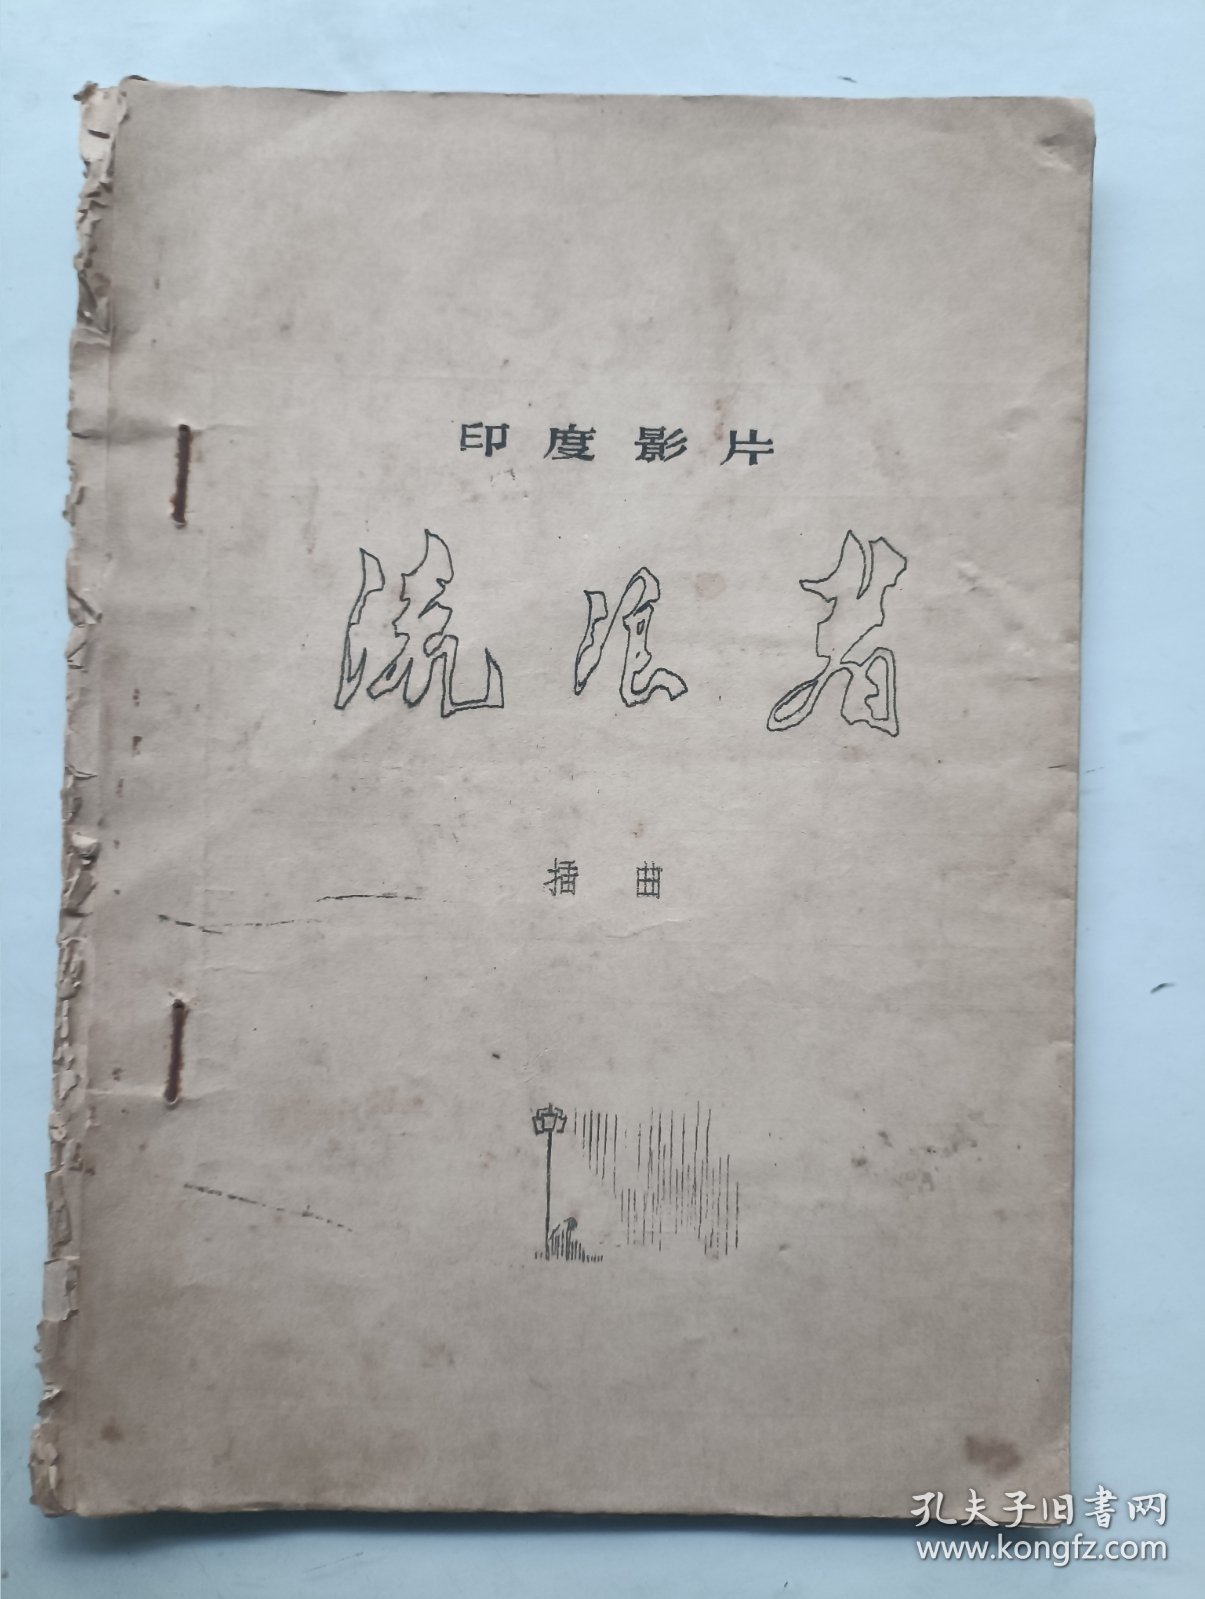 印度影片
流浪者
插曲
孔夫子旧書网
www.kongfz.com